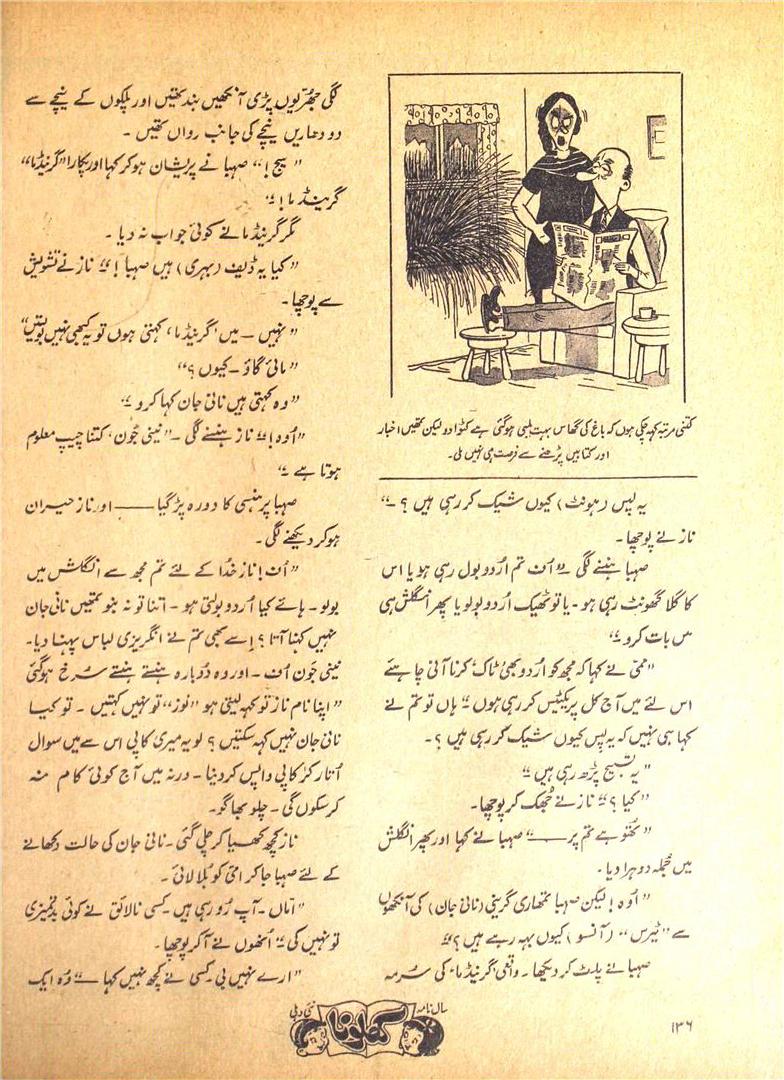 کتنی مرتبہ کہہ چکی ہوں کہ باغ کی گھاس بہت لمبی ہوگئی ہے کٹوا دو لیکن تمھیں اخبار
اور کتابیں پڑھنے سے فرصت ہی نہیں ملی۔
یہ لپس (ہونٹ) کیوں شیک کر رہی ہیں ؟ ۔"
ناز نے پوچھا۔
صہبا ہنسنے لگی ۔" اُف تم اُردو بول رہی ہو یا اس
کا گلا گھونٹ رہی ہو ۔ یا تو ٹھیک اُردو بولو یا پھر انگلش ہی
میں بات کرو۔"
"ممی نے کہا کہ مجھ کو اُردو بھی ٹاک کرنا آنی چاہیئے
اس لئے میں آج کل پریکٹیس کر رہی ہوں" ہاں تو تم نے
کہا ہی نہیں کہ یہ لپس کیوں شیک کر رہی ہیں ؟۔
"یہ تسبیح پڑھ رہی ہیں"
"کیا ؟" ناز نے ٹھٹک کر پوچھا۔
"تھُو ہے تم پر ——" صہبا نے کہا اور پھر انگلش
میں جُملہ دوہرا دیا۔
"اوہ ! لیکن صہبا تمھاری گرینی (نانی جان) کی آنکھوں
سے "ٹیرس" (آنسو) کیوں بہہ رہے ہیں ؟"
صہبا نے پلٹ کر دیکھا۔ واقعی 'گرینڈما' کی سُرمہ
لگی جھُرّیوں پڑی آنکھیں بند تھیں اور پلکوں کے نیچے سے
دو دھاریں نیچے کی جانب رواں تھیں ۔
"سچ !" صہبا نے پریشان ہو کر کہا اور پکارا "گرینڈما"
گرینڈ ما !"
مگر گرینڈما نے کوئی جواب نہ دیا ۔
"کیا یہ ڈیف (بہری) ہیں صہبا !" ناز نے تشویش
سے پوچھا۔
"نہیں ۔ میں 'گرینڈما' کہتی ہوں تو یہ کبھی نہیں بولتیں"
"مائی گاڈ ۔ کیوں ؟"
"وہ کہتی ہیں نانی جان کہا کرو"
"اُوہ !" ناز ہنسنے لگی ۔ "نینی جُون' کتنا چیپ معلوم
ہوتا ہے"
صہبا پر ہنسی کا دورہ پڑ گیا —— اور ناز حیران
ہو کر دیکھنے لگی۔
"اُف ! ناز خُدا کے لئے تم مجھ سے انگلش میں
بولو ۔ ہائے کیا اُردو بولتی ہو ۔ اتنا تو نہ بنو تمھیں نانی جان
نہیں کہنا آتا ؟ اسے بھی تم نے انگریزی لباس پہنا دیا۔
نینی جُون اُف ۔ اور وہ دوبارہ ہنستے ہنستے سُرخ ہوگئی
"اپنا نام ناز تو کہہ لیتی ہو "نوز" تو نہیں کہتیں ۔ تو کیا
نانی جان نہیں کہہ سکتیں ؟ لو یہ میری کاپی اس سے میں سوال
اُتار کر کاپی واپس کر دینا ۔ ورنہ میں آج کوئی کام نہ
کر سکوں گی ۔ چلو بھاگو۔
ناز کچھ کھسیا کر چلی گئی ۔ نانی جان کی حالت دکھانے
کے لئے صہبا جا کر امی کو بُلا لائی ۔
"امّاں ۔ آپ رو رہی ہیں ۔ کسی نالائق نے کوئی بدتمیزی
تو نہیں کی" اُنھوں نے آ کر پوچھا۔
"ارے نہیں بی ۔ کسی نے کچھ نہیں کہا —" وُہ ایک
سال نامہ کھلونا نئی دہلی
۱۳۶